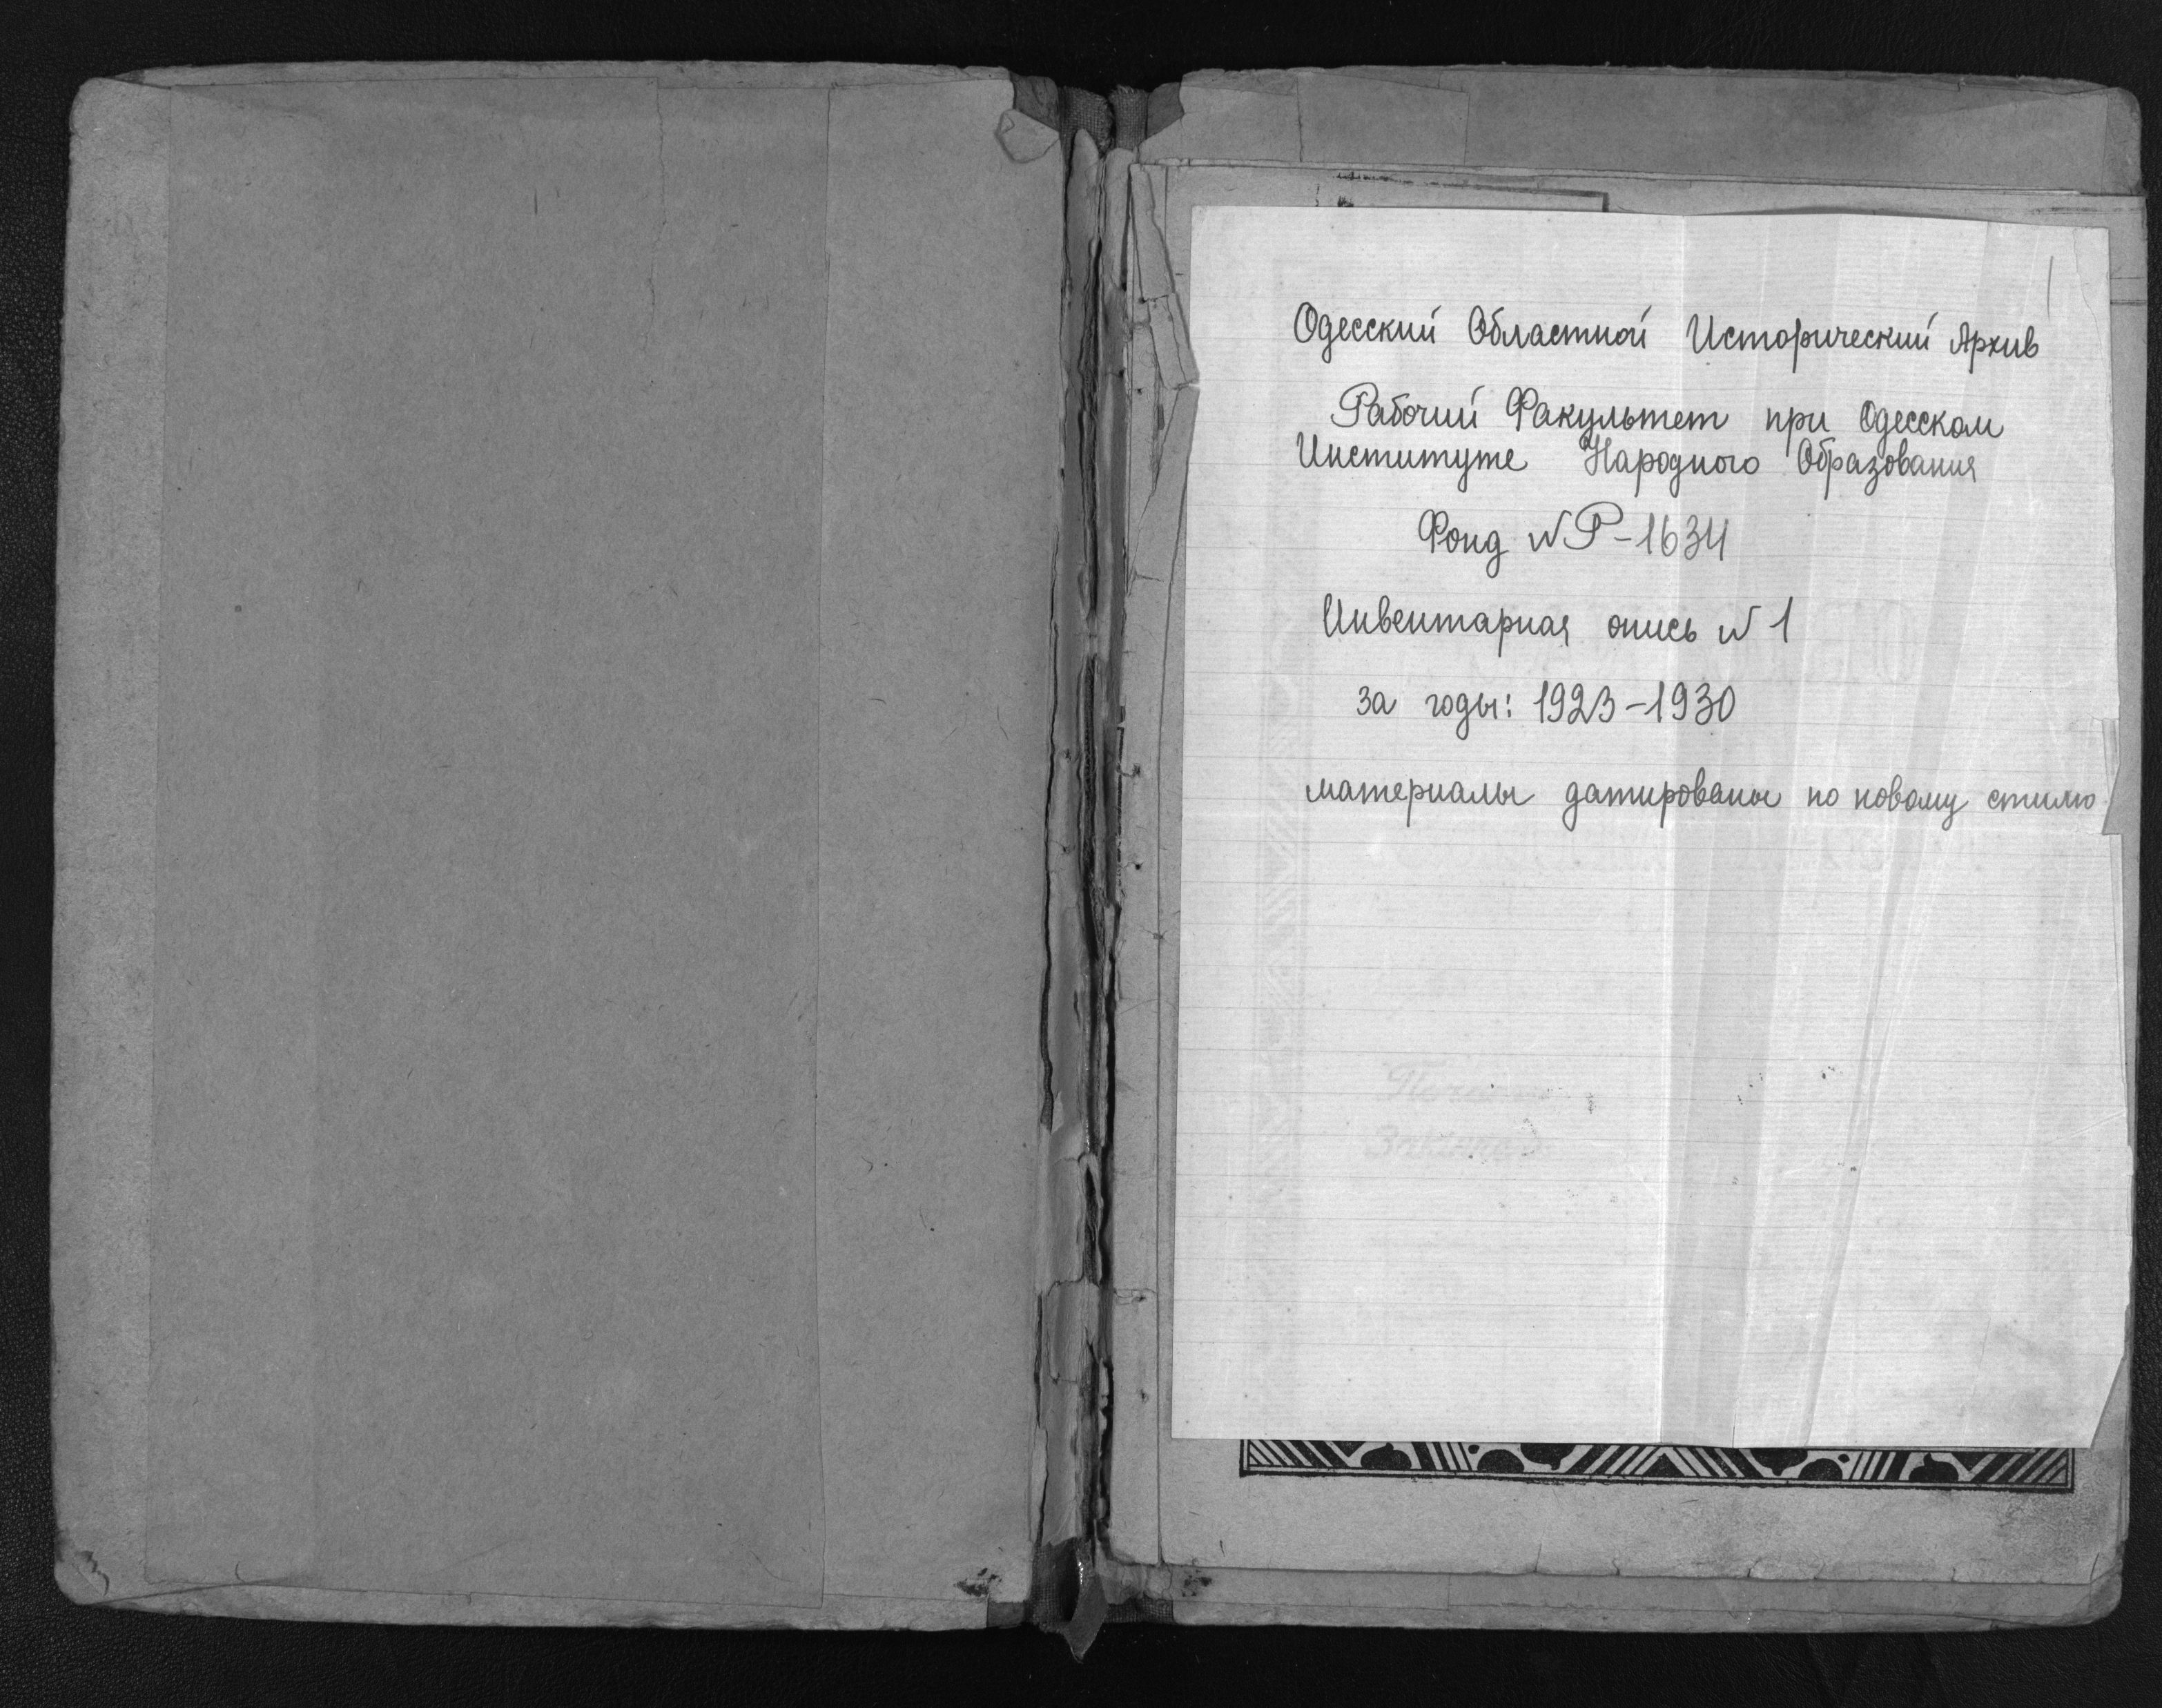 Одесский Областной Исторический Архив
Рабочий Факультет при Одесском
Институте Народного Образования
Фонд №Р-1634
Инвентарная опись №1
за годы: 1923-1930
материалы датированы по новому стилю